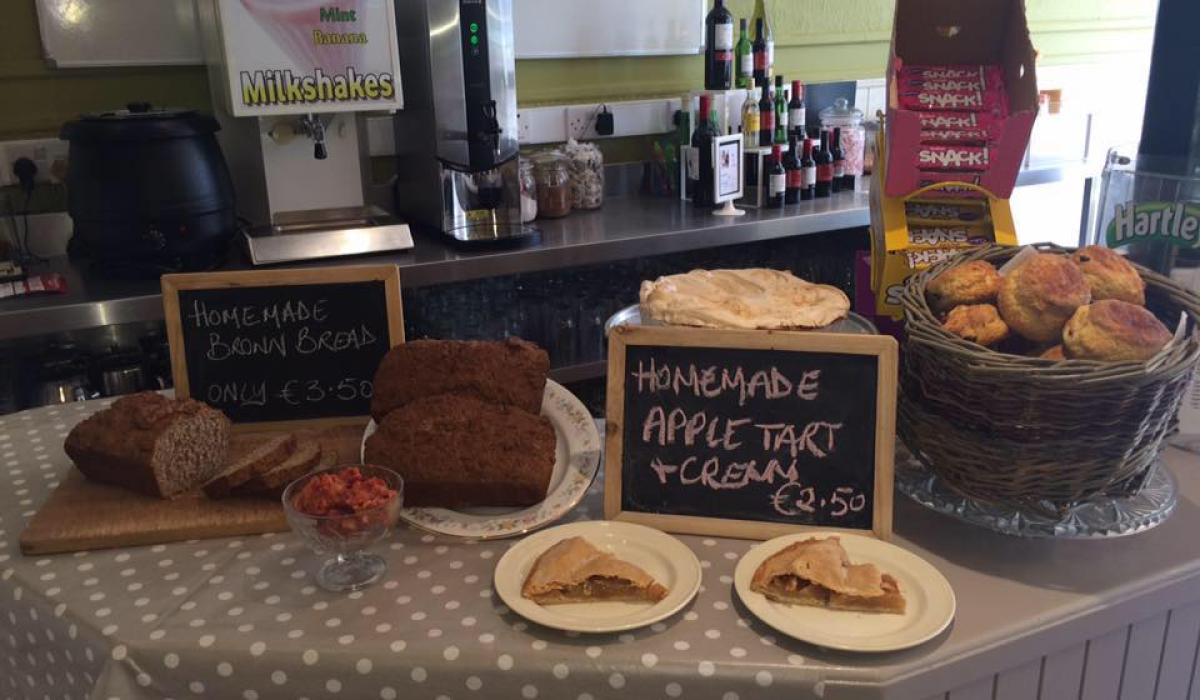 Mint
Banana
Milkshakes
HOMEMADE
BROWN BREAD
ONLY €3.50
HOMEMADE
APPLE TART
+ CREAM
€2.50
SNACK!
SNACK!
SNACK!
SNACK!
SNACK!
SNACK!
Hartle